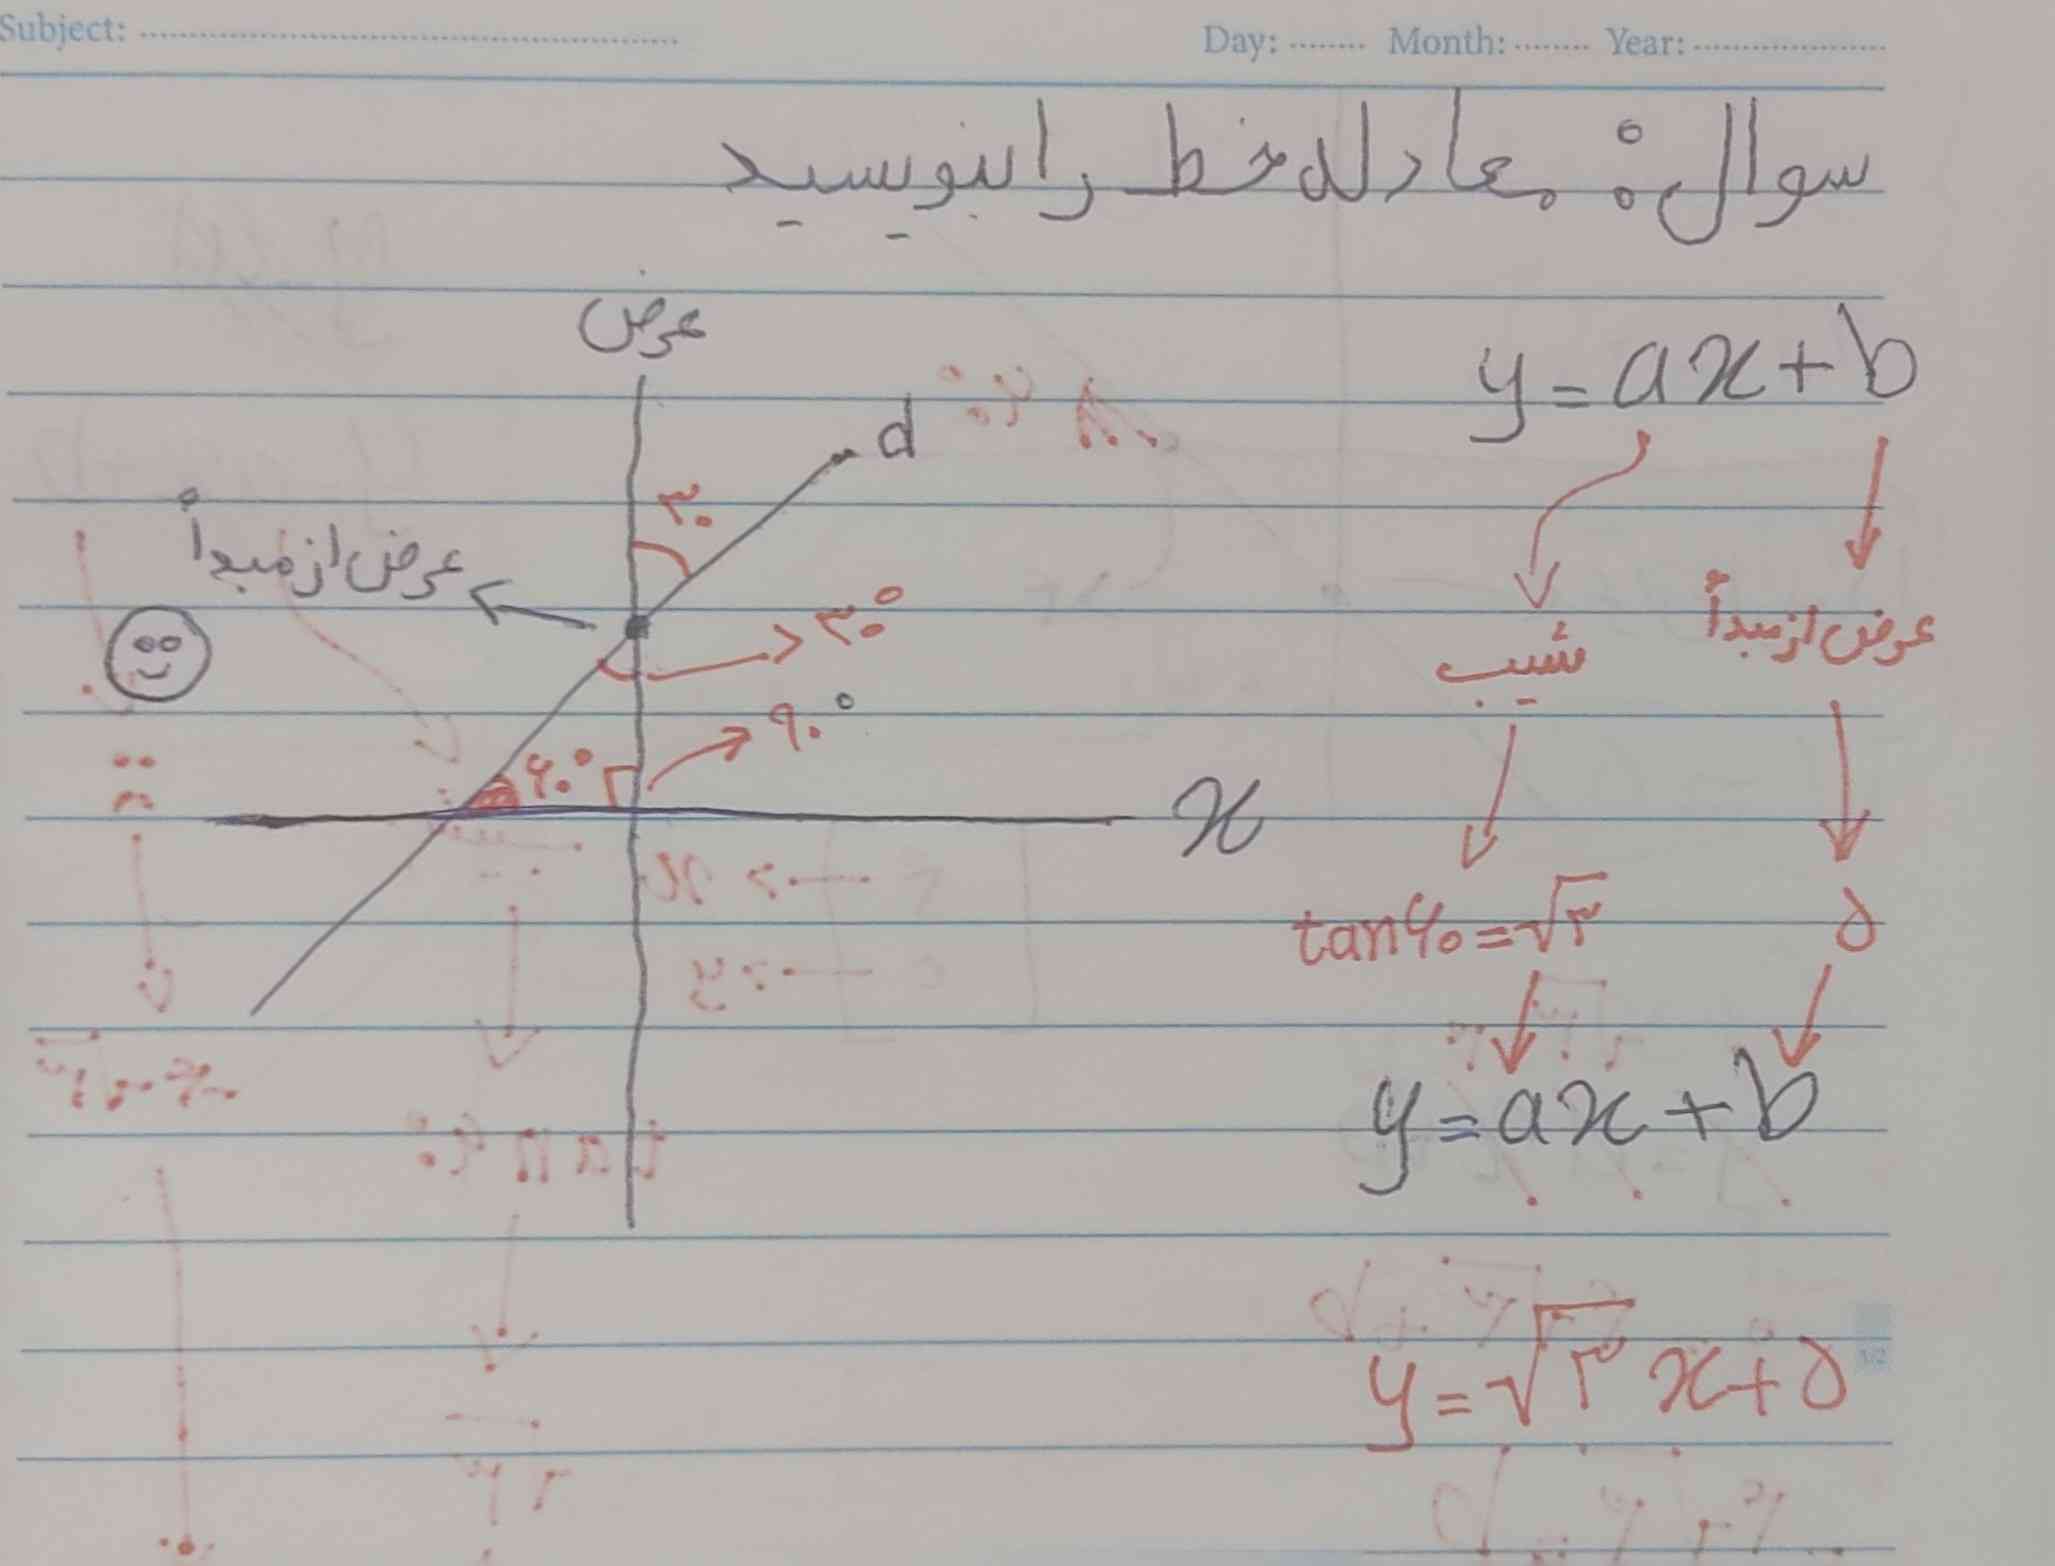 Subject: Day: Month: Year:
سوال: معادله خط را بنویسید
عرض
y = ax + b
d
۳۰
عرض از مبدأ
۳۰°
شیب
عرض از مبدأ
۹۰°
۶۰°
x
tan ۶۰ = √۳
۵
y = ax + b
y = √۳ x + ۵